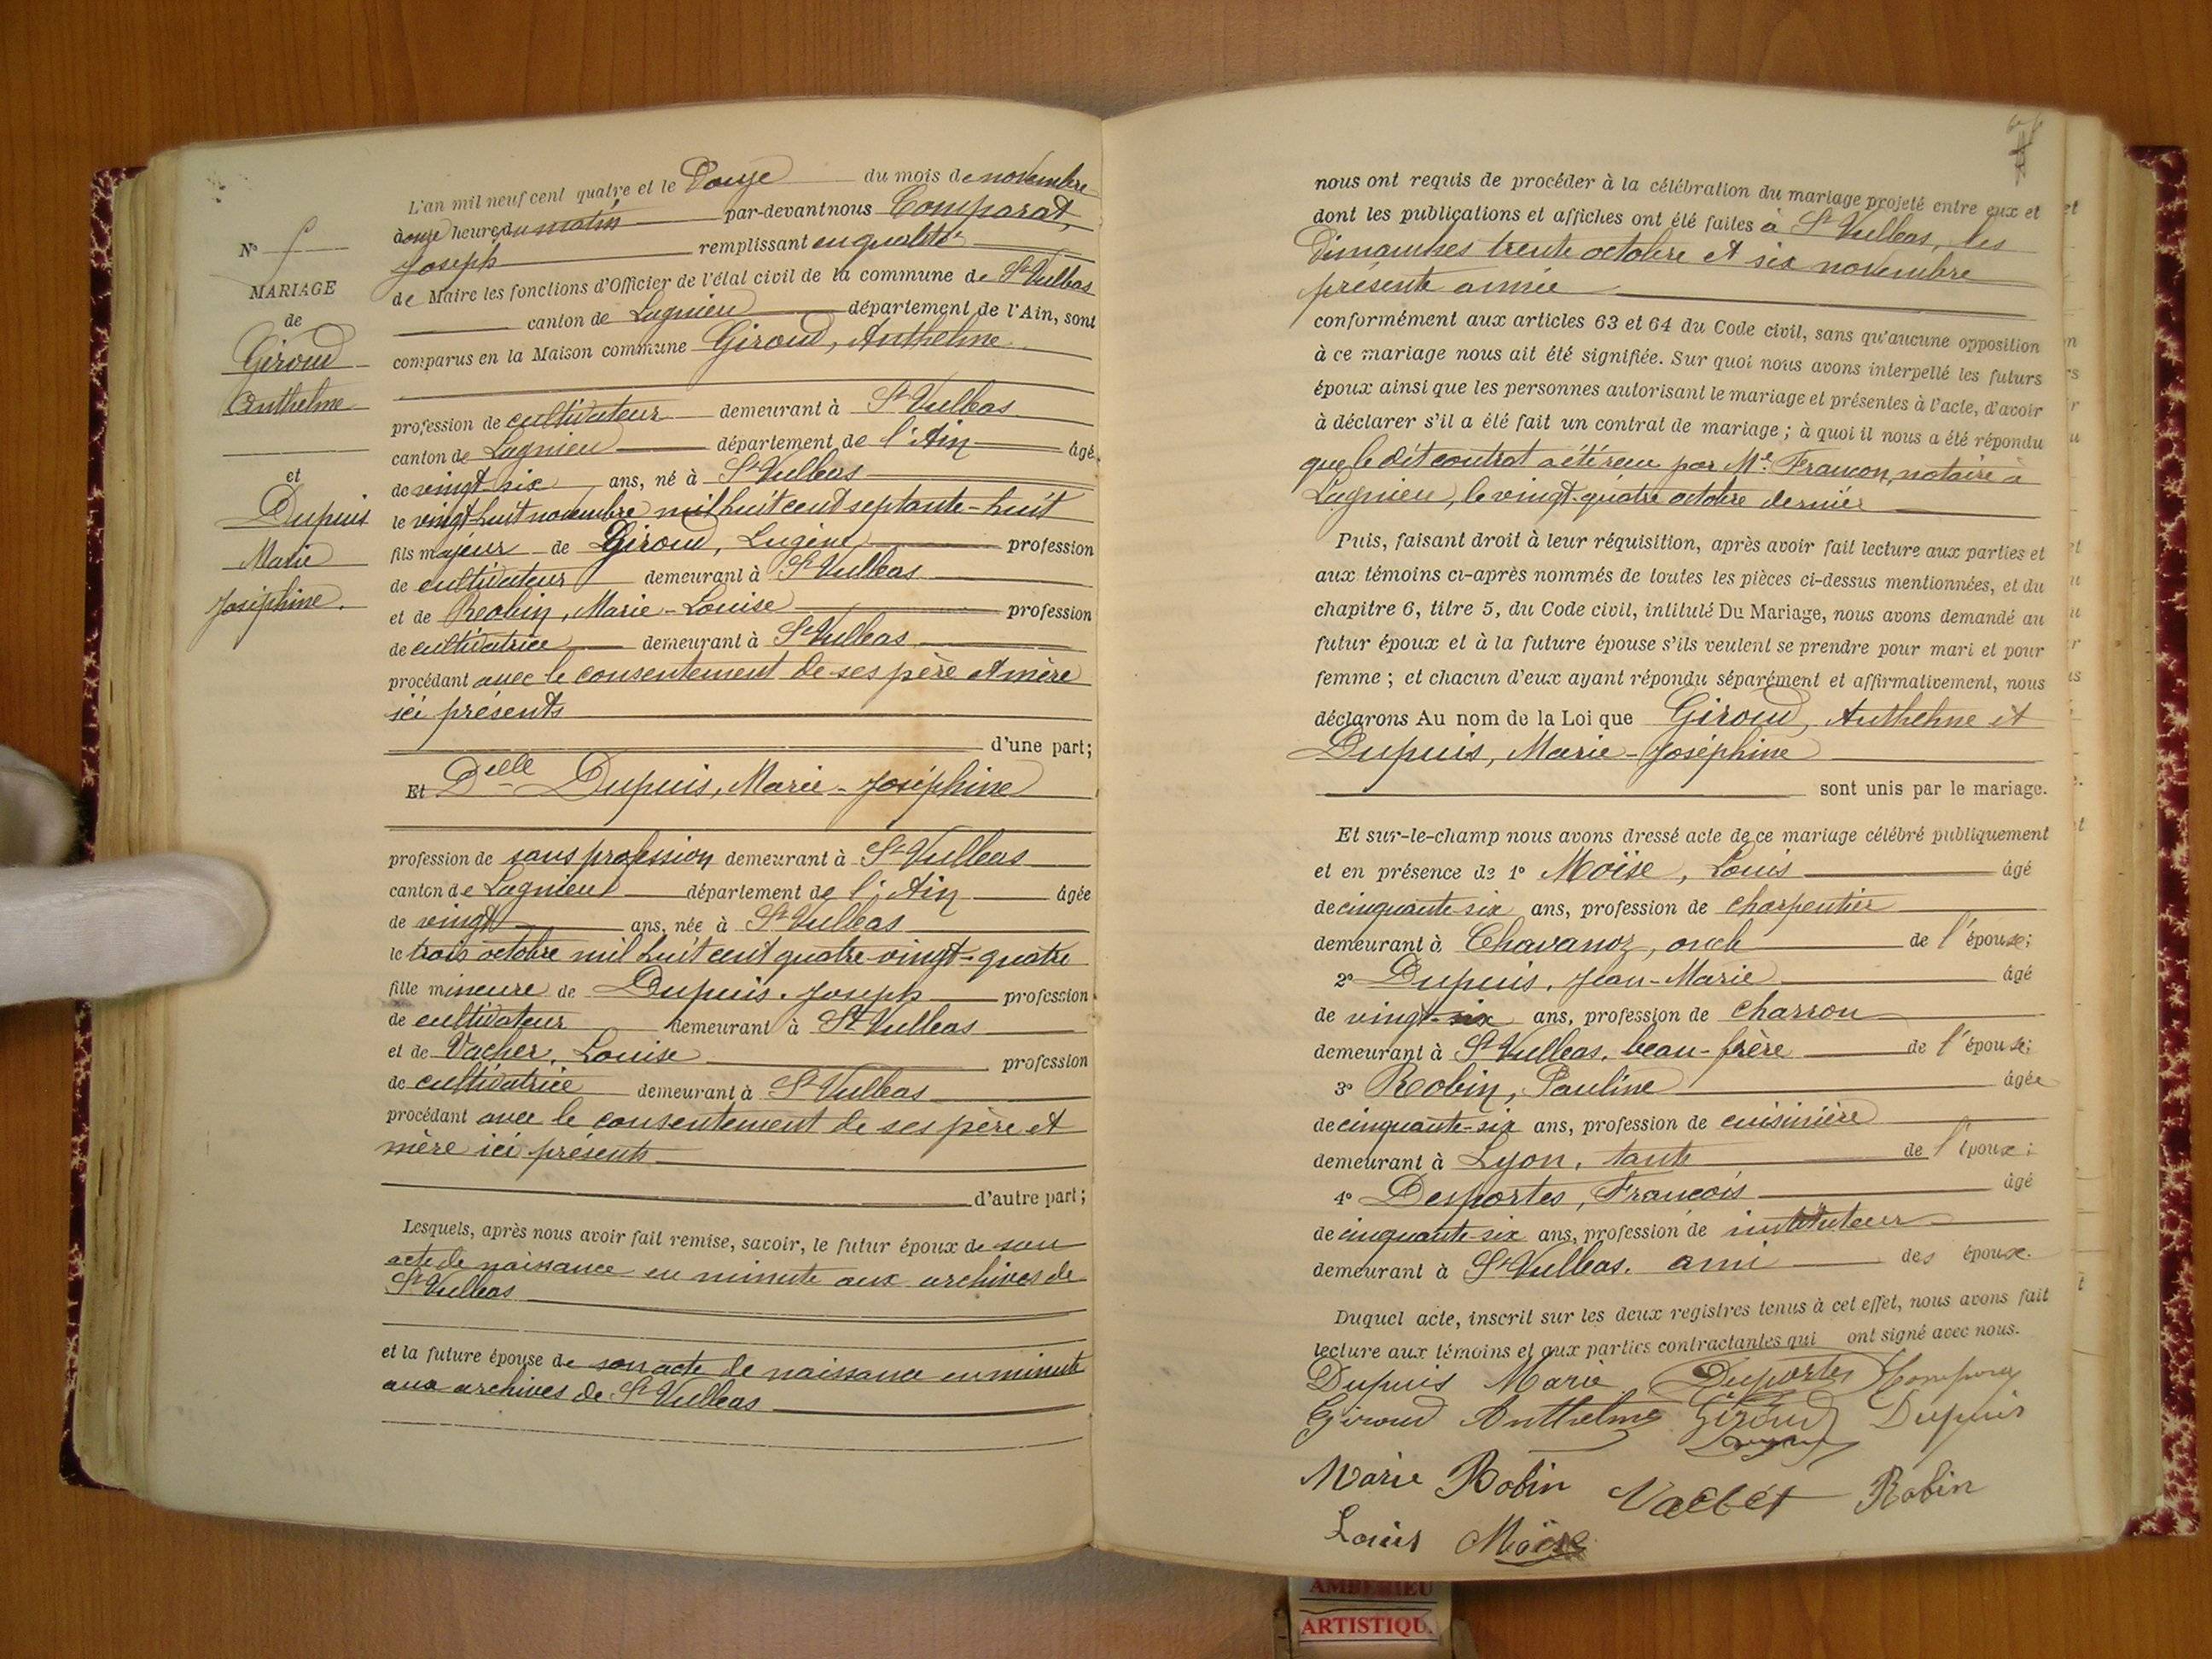 L'an mil neuf cent quatre et le Douze du mois de novembre
heure du matin par-devant nous Comparat,
Joseph remplissant en qualité
de Maire les fonctions d'Officier de l'état civil de la commune de St Vulbas
canton de Lagnieu département de l'Ain, sont
comparus en la Maison commune Giroud, Anthelme
profession de cultivateur demeurant à St Vulbas
canton de Lagnieu département de l'Ain âgé
de vingt-six ans, né à St Vulbas
le vingt-huit novembre mil huit cent septante-huit
fils majeur de Giroud, Eugène profession
de cultivateur demeurant à St Vulbas
et de Robin, Marie-Louise profession
de cultivatrice demeurant à St Vulbas
procédant avec le consentement de ses père et mère
ici présents
d'une part;
Et Delle Dupuis, Marie-Joséphine
profession de sans profession demeurant à St Vulbas
canton de Lagnieu département de l'Ain âgée
de vingt ans, née à St Vulbas
le trois octobre mil huit cent quatre-vingt-quatre
fille mineure de Dupuis, Joseph profession
de cultivateur demeurant à St Vulbas
et de Vacher, Louise profession
de cultivatrice demeurant à St Vulbas
procédant avec le consentement de ses père et
mère ici présents
d'autre part;
Lesquels, après nous avoir fait remise, savoir, le futur époux de son
acte de naissance en minute aux archives de
St Vulbas
et la future épouse de son acte de naissance en minute
aux archives de St Vulbas
No
MARIAGE
de
Giroud
Anthelme
et
Dupuis
Marie
Joséphine.
nous ont requis de procéder à la célébration du mariage projeté entre eux et
dont les publications et affiches ont été faites à St Vulbas, les
Dimanches trente octobre et six novembre
présente année
conformément aux articles 63 et 64 du Code civil, sans qu'aucune opposition
à ce mariage nous ait été signifiée. Sur quoi nous avons interpellé les futurs
époux ainsi que les personnes autorisant le mariage et présentes à l'acte, d'avoir
à déclarer s'il a été fait un contrat de mariage; à quoi il nous a été répondu
que le dit contrat a été reçu par Me Francon, notaire à
Lagnieu, le vingt-quatre octobre dernier
Puis, faisant droit à leur réquisition, après avoir fait lecture aux parties et
aux témoins ci-après nommés de toutes les pièces ci-dessus mentionnées, et du
chapitre 6, titre 5, du Code civil, intitulé Du Mariage, nous avons demandé au
futur époux et à la future épouse s'ils veulent se prendre pour mari et pour
femme; et chacun d'eux ayant répondu séparément et affirmativement, nous
déclarons Au nom de la Loi que Giroud, Anthelme et
Dupuis, Marie-Joséphine
sont unis par le mariage.
Et sur-le-champ nous avons dressé acte de ce mariage célébré publiquement
et en présence de 1° Moïse, Louis âgé
de cinquante-six ans, profession de charpentier
demeurant à Chavanoz, oncle de l'épouse;
2° Dupuis, Jean-Marie âgé
de vingt-six ans, profession de charron
demeurant à St Vulbas, beau-frère de l'épouse;
3° Robin, Pauline âgée
de cinquante-six ans, profession de cuisinière
demeurant à Lyon, tante de l'époux;
4° Desportes, François âgé
de cinquante-six ans, profession de instituteur
demeurant à St Vulbas, ami des époux.
Duquel acte, inscrit sur les deux registres tenus à cet effet, nous avons fait
lecture aux témoins et aux parties contractantes qui ont signé avec nous.
Dupuis Marie Desportes
Giroud Anthelme Giroud Dupuis
Marie Robin Robin
Louis Moïse
AMBERIEU
ARTISTIQU